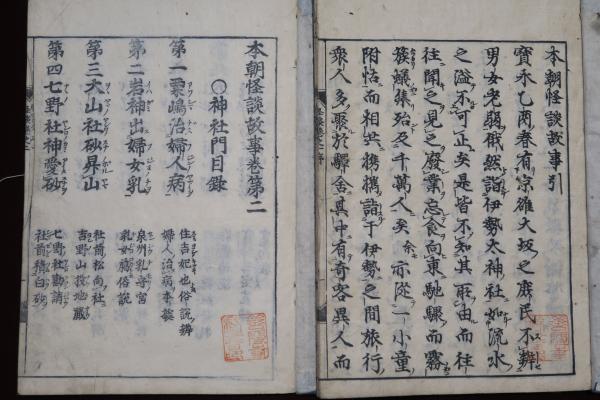 本朝怪談故事引
寳永乙酉春有京雒大坂之庶民不辨
男女老弱俄然詣伊勢大神社如流水
之溢不可止矣是皆不知其所由而往
往聞之見之廢業忘食向東馳驟而霧
簇蟻集殆及千萬人矣余亦從一小童
附怙而相共携攜詣于伊勢之間旅行
衆人多聚於驛舎其中有奇客異人而
本朝怪談故事巻第二
○神社門目録
第一粟嶋治婦人病
住吉妃也俗説辨
婦人治病本薬
第二岩神出婦女乳
泉州乳母宮
乳女臈俗説
第三大山社砂昇山
社前松向社
吉野山投地蔵
第四七野社神愛砂
七野社勸請
社前積白砂